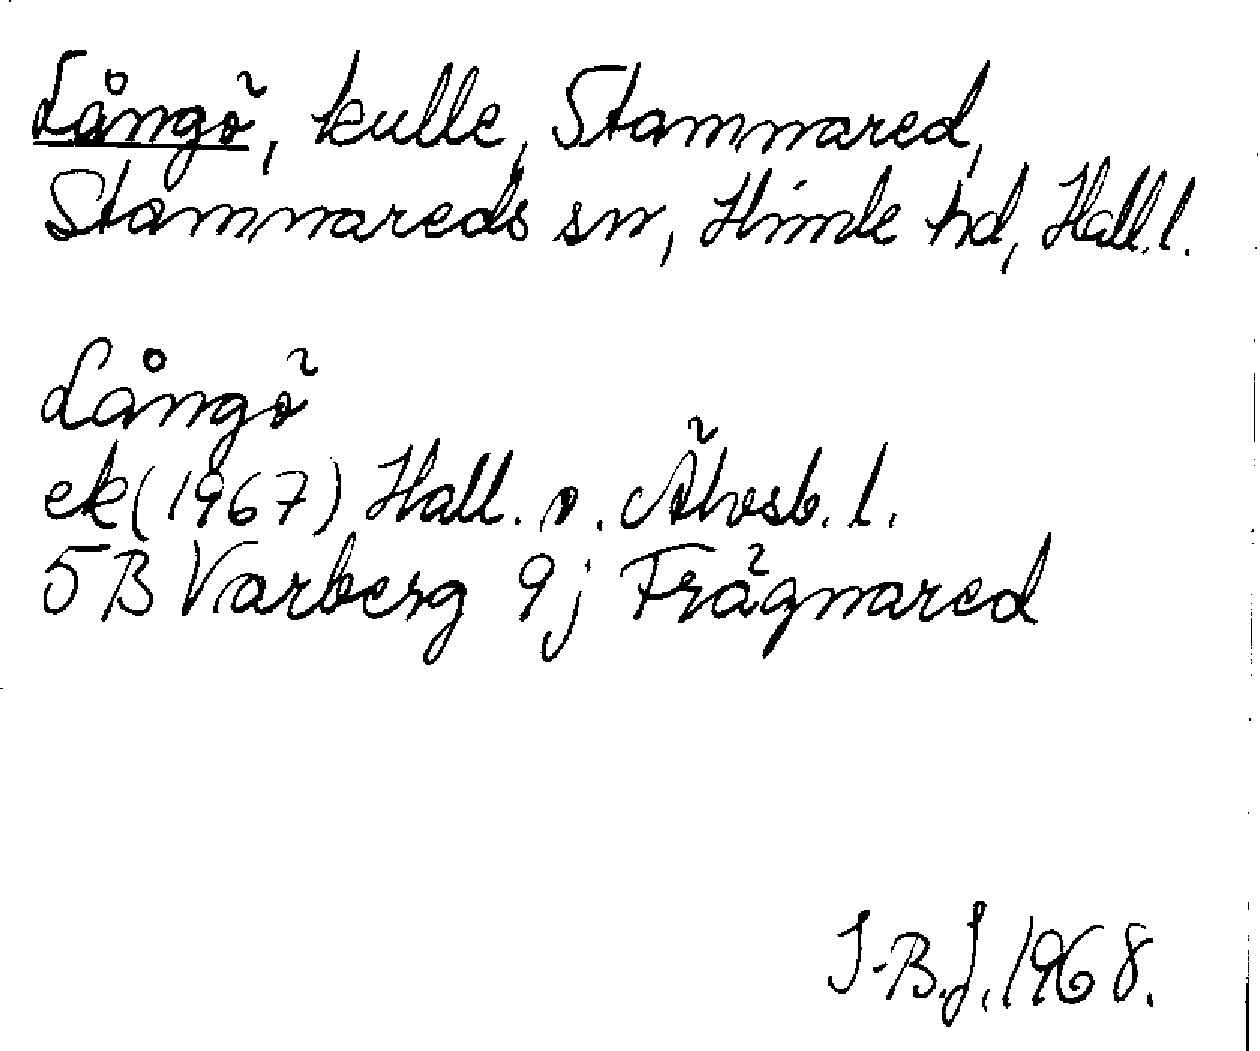 Långö, kulle, Stamnared,
Stamnareds sn, Himle hd, Hall.l.
Långö
ek (1967) Hall. o. Älvsb. l.
5B Varberg 9j Frägnared
I-B.J. 1968.